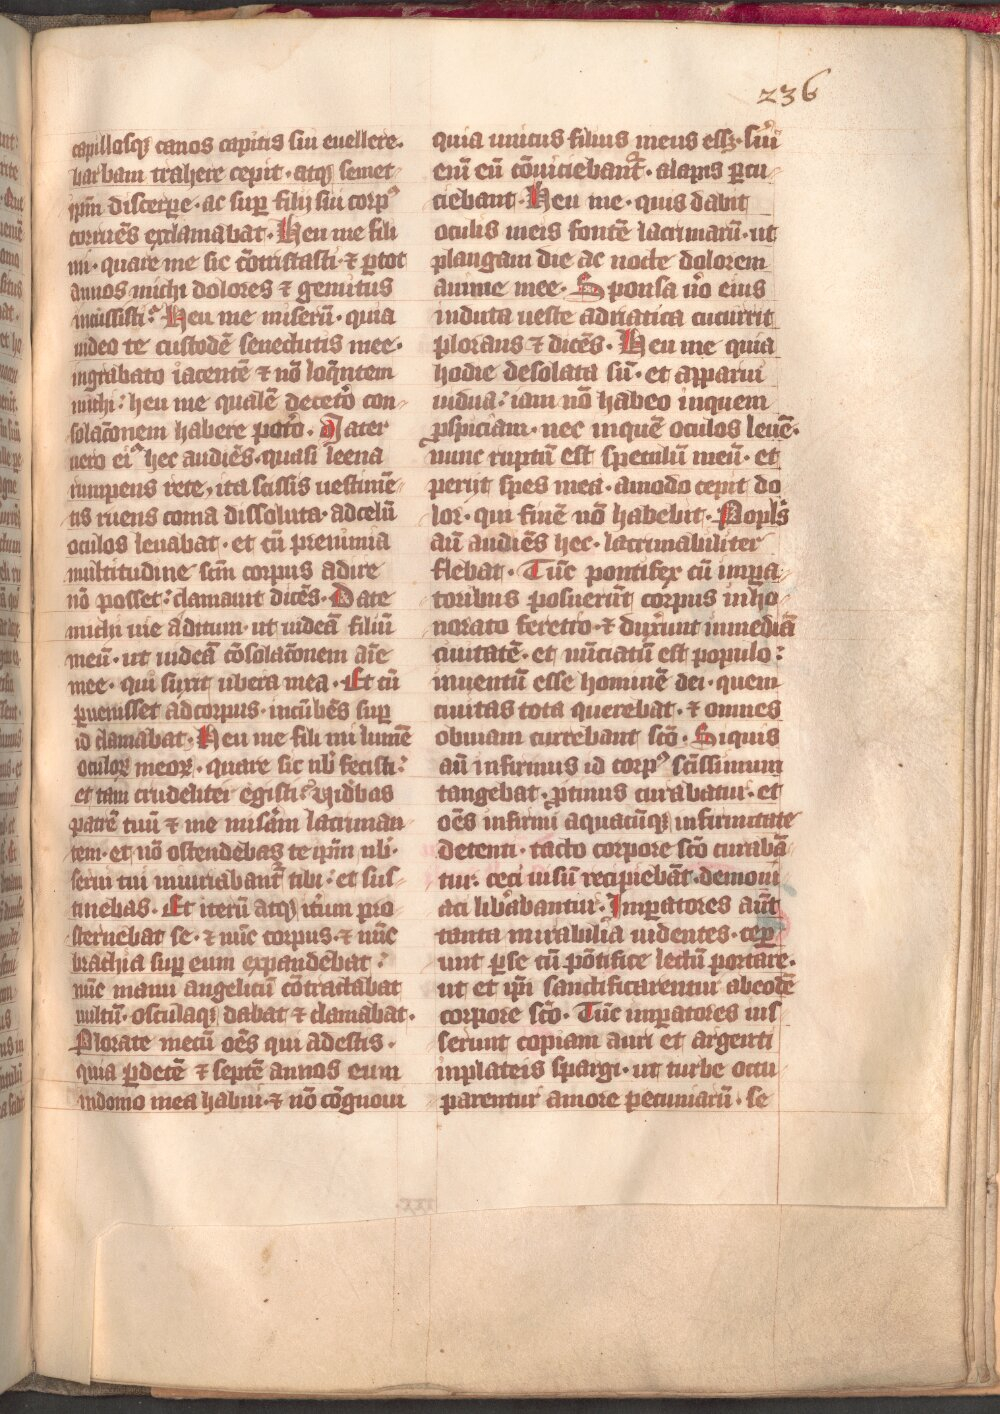 236
capillosq̄ canos capitis sui euellere·
barbam trahere cepit· atq̄ semet
ip̄m discerpe· ac sup̄ filij sui corpꝰ
corruēs exclamabat· Heu me fili
mi· quare me sic cōtristasti· ⁊ ꝑ tot
annos michi dolores ⁊ gemitus
incussisti? Heu me miserū· quia
uideo te custodē senectutis mee·
in grabato iacentē ⁊ nō loq̄ntem
michi: heu me qualē decet̄o con
solac̄onem habere pot̄o· Mater
uero eiꝰ hec audiēs· quasi leena
rumpens rete, ita scissis uestimē
tis ruens coma dissoluta· ad celū
oculos leuabat· et cū pre nimia
multitudine sc̄m corpus adire
nō posset: clamauit dicēs· Date
michi uie aditum· ut uideā filiū
meū· ut uideā cōsolac̄onem āīe
mee· qui suxit ubera mea· Et cū
ꝑuenisset ad corpus· incūbēs sup̄
id clamabat· Heu me fili mi lumē
oculoꝝ meoꝝ· quare sic nb̄ fecisti:
et tam crudeliter egisti? vid̄bas
patrē tuū ⁊ me mis̄am lacriman
tem· et nō ostendebas te ip̄m nb̄·
serui tui iniuriabant̄ tibi: et sus
tinebas· Et iterū atq̄ it̄um pro
sternebat se· ⁊ nūc corpus· ⁊ nūc
brachia sup̄ eum expandebat:
nūc manu angelicū cōtractabat
uultū· osculaq̄ dabat ⁊ clamabat·
Plorate mecū oēs qui adestis·
quia ꝑ decē ⁊ septē annos eum
in domo mea habui· ⁊ nō cōgnoui
quia unicus filius meus eēꝫ· sui
eni eū cōuiciebant̄· alapis ꝑcu
ciebant· Heu me· quis dabit
oculis meis fontē lacrimarū· ut
plangam die ac nocte dolorem
anime mee· Sponsa ūo eius
induta ueste adriatica cucurrit
plorans ⁊ dicēs· Heu me quia
hodie desolata sū· et apparui
uidua: iam nō habeo in quem
ꝑspiciam· nec in quē oculos leuē·
nunc ruptū est speculū meū· et
perijt spes mea· amodo cepit do
lor· qui finē nō habebit· Popls̄
aū audiēs hec· lacrimabiliter
flebat· Tūc pontifex cū impa
toribus posuerūt corpus in ho
norato feretro· ⁊ duxrunt in mediā
ciuitatē· et nūciatū est populo:
inuentū esse hominē dei· quem
ciuitas tota querebat· ⁊ omnes
obuiam currebant sc̄o· Siquis
aū infirmus id corpꝰ sc̄issimum
tangebat· ꝓtinus curabatur· et
oēs infirmi a quacūq̄ infirmitate
detenti· tacto corpore sc̄o curabā
tur· ceci uisū recipiebāt· demoni
aci lib̄abantur· Impatores aūt
tanta mirabilia uidentes· cep̄
unt ꝑ se cū pōtifice lectū portare·
ut et ip̄i sanctificarentur ab eodē
corpore sc̄o· Tūc impatores ius
serunt copiam auri et argenti
in plateis spargi· ut turbe occu
parentur amore pecuniarū· se